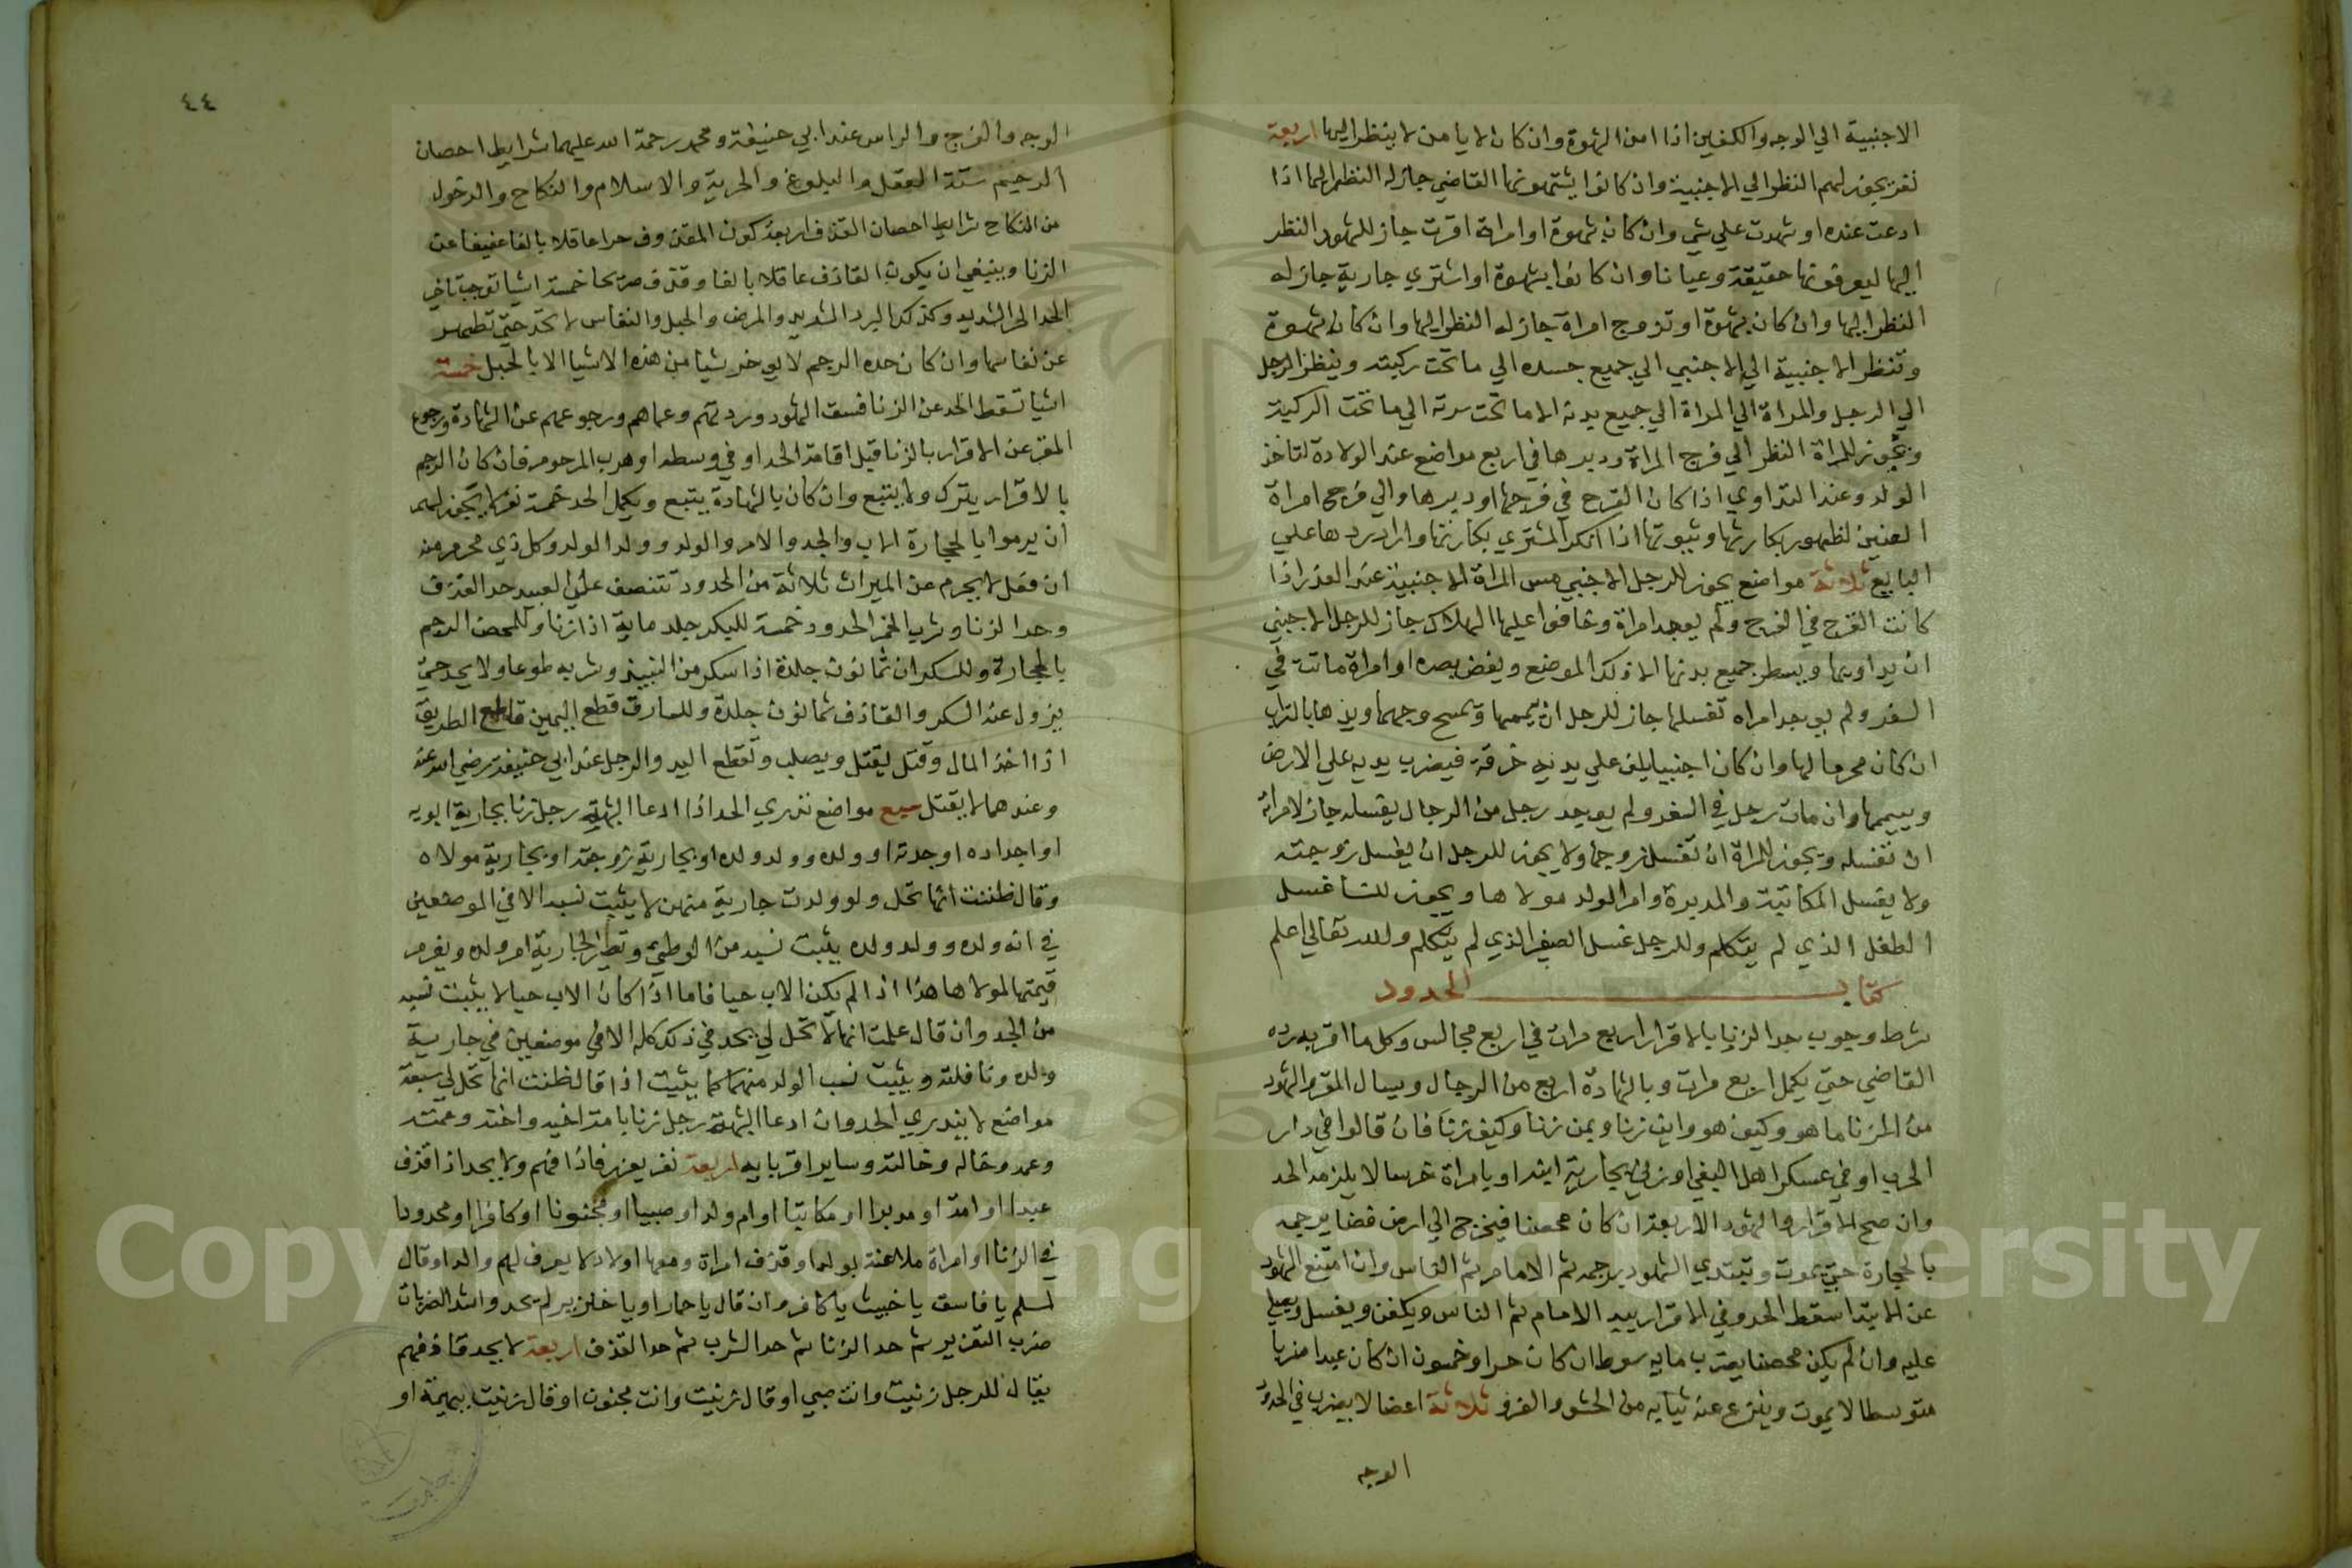 الاجنبية الي الوجه والكفين اذا امن الشهوة وان كان لا يامن لا ينظر اليها اربعة
نفر يجوز لهم النظر الي الاجنبية وان كانوا يشتهونها القاضي جاز له النظر اليها اذا
ادعت عنده او شهدت علي شي وان كان بشهوة او امراة اقرت جاز للشهود النظر
اليها ليعرفونها حقيقة وعيانا وان كانوا بشهوة او اشتري جارية جاز له
النظر اليها وان كان بشهوة او تزوج امراة جاز له النظر اليها وان كان بشهوة
وتنظر الاجنبية الي الاجنبي الي جميع جسده الي ما تحت ركبته وينظر الرجل
الي الرجل والمراة الي المراة الي جميع بدنه الا ما تحت سرته الي ما تحت الركبة
ويجوز للمراة النظر الي فرج المراة ودبرها في اربع مواضع عند الولادة لتاخذ
الولد وعند التداوي اذا كان القرح في فرجها او دبرها والي فرج امراة
العنين لظهور بكارتها وثيوبتها اذا انكر المشتري بكارتها واراد ردها علي
البايع ثلاثة مواضع يجوز للرجل الاجنبي مس المراة الاجنبية عند العذر اذا
كانت القرح في الفرج ولم يوجد امراة وخافوا عليها الهلاك جاز للرجل الاجنبي
ان يداويها ويسطر جميع بدنها الا ذلك الموضع ويغض بصره او امراة ماتت في
السفر ولم يوجد امراه تغسلها جاز للرجل ان ييممها ويمسح وجهها ويديها بالتراب
ان كان محرما لها وان كان اجنبيا يلف علي يديه خرقة فيضرب يديه علي الارض
وييممها وان مات رجل في السفر ولم يوجد رجل من الرجال يغسله جاز لامراته
ان تغسله ويجوز للمراة ان تغسل زوجها ولا يجوز للرجل ان يغسل زوجته
ولا يغسل المكاتبة والمدبرة وام الولد مولاها ويجوز للنسا غسل
الطفل الذي لم يتكلم وللرجل غسل الصغير الذي لم يتكلم والله تعالي اعلم
كتاب الحدود
شرط وجوب حد الزنا بالاقرار اربع مرات في اربع مجالس وكل ما اقر به رده
القاضي حتي يكمل اربع مرات وبالشهادة اربع من الرجال ويسال المقر والشهود
من الزنا ما هو وكيف هو واين زنا وبمن زنا وكيف زنا فان قالوا في دار
الحرب او في عسكر اهل البغي او زني بجارية ابنه او بامراة خرسا لا يلزمه الحد
وان صح الاقرار والشهود الاربعة ان كان محصنا فيخرج الي ارض فضا يرجمه
بالحجارة حتي يموت ويبتدي الشهود برجمه ثم الامام ثم الناس وان امتنع الشهود
عن الابتدا سقط الحد وفي الاقرار يبد الامام ثم الناس ويكفن ويغسل ويصلي
عليه وان لم يكن محصنا يضرب مايه سوط ان كان حرا وخمسون ان كان عبدا ضربا
متوسطا لا يموت وينزع عنه ثيابه من الحشو والفرو ثلاثة اعضا لا يضرب في الحدود
الوجه
٤٤
الوجه والفرج والراس عند ابي حنيفة ومحمد رحمة الله عليهما شرايط احصان
الرجم ستة العقل والبلوغ والحرية والاسلام والنكاح والدخول
من النكاح شرايط احصان القذف اربعة كون المقذوف حرا عاقلا بالغا عفيفا عن
الزنا وينبغي ان يكون القاذف عاقلا بالغا وقذف صريحا خمسة اشيا توجب تاخير
الحد الحر الشديد وكذلك البرد الشديد والمرض والحبل والنفاس لا تحد حتي تطهر
عن نفاسها وان كان حده الرجم لا يوخر شيا من هذه الاشيا الا بالحبل خمسة
اشيا تسقط الحد عن الزنا فسق الشهود وردتهم وعماهم ورجوعهم عن الشهادة ورجوع
المقر عن الاقرار بالزنا قبل اقامة الحد او في وسطه او هرب المرجوم فان كان الرجم
بالاقرار يترك ولا يتبع وان كان بالشهادة يتبع ويكمل الحد خمسة نفر لا يجوز لهم
ان يرموا بالحجارة الاب والجد والام والولد وولد الولد وكل ذي محرم منه
ان فعل لا يحرم عن الميراث ثلاثة من الحدود تتنصف علي العبد حد القذف
وحد الزنا وشرب الخمر الحدود خمسة للبكر جلد ماية اذا زنا وللمحصن الرجم
بالحجارة وللسكران ثمانون جلدة اذا سكر من النبيذ وشربه طوعا ولا يحد حتي
يزول عنه السكر والقاذف ثمانون جلدة وللسارق قطع اليمين قاطع الطريق
اذا اخذ المال وقتل يقتل ويصلب وتقطع اليد والرجل عند ابي حنيفة رضي الله عنه
وعندهما لا يقتل سبع مواضع تدري الحد اذا ادعا الشبهة رجل زنا بجارية ابويه
او اجداده او جدته او ولده وولد ولده او بجارية زوجته او بجارية مولاه
وقال ظننت انها تحل ولو ولدت جارية منهن لا يثبت نسبه الا في الموضعين
في انه ولده وولد ولده يثبت نسبه من الوطي وتصير الجارية ام ولده ويغرم
قيمتها لمولاها هذا اذا لم يكن الاب حيا فاما اذا كان الاب حيا لا يثبت نسبه
من الجد وان قال علمت انها لا تحل لي يحد في ذلك كله الا في موضعين في جارية
ولده ونافلته ويثبت نسب الولد منهما كما يثبت اذا قال ظننت انها تحل لي سبعة
مواضع لا يندري الحد وان ادعا الشبهة رجل زنا بامة اخيه واخته وعمته
وعمه وخاله وخالته وساير اقربايه اربعة نفر يعزر قاذفهم ولا يحد اذا قذف
عبدا او امة او مدبرا او مكاتبا او ام ولد او صبيا او مجنونا او كافرا او محدودا
في الزنا او امراة ملاعنة بولد او قذف امراة ومعها اولاد لا يعرف لهم والد او قال
لمسلم يا فاسق يا خبيث يا كافر وان قال يا حمار او يا خنزير لم يحد واشد الضربات
ضرب التعزير ثم حد الزنا ثم حد الشرب ثم حد القذف اربعة لا يحد قاذفهم
يقال للرجل زنيت وانت صبي او قال زنيت وانت مجنون او قال زنيت ببهيمة او
Copyright © King Saud University